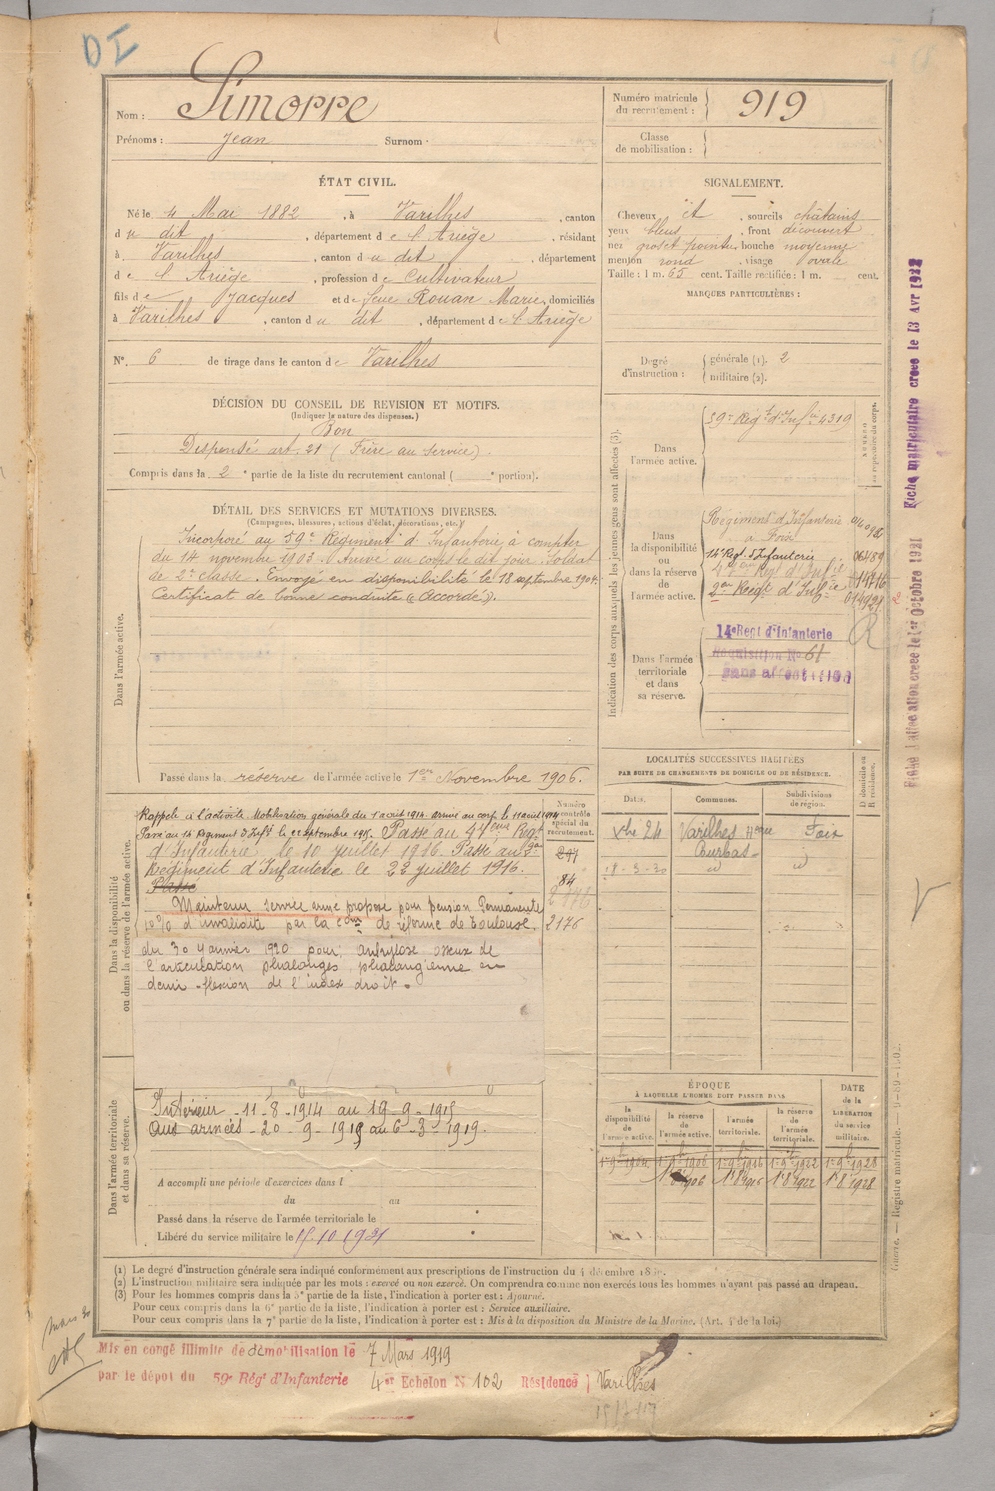 DI
Nom : Simorre
Prénoms : Jean Surnom :
Numéro matricule du recrutement : 919
Classe de mobilisation :
ÉTAT CIVIL.
Né le 4 Mai 1882, à Varilhes, canton
du dit, département de l'Ariège, résidant
à Varilhes, canton du dit, département
de l'Ariège, profession de Cultivateur
fils de Jacques et de feue Rouan Marie, domiciliés
à Varilhes, canton du dit, département de l'Ariège
N°. 6 de tirage dans le canton de Varilhes
SIGNALEMENT.
Cheveux et, sourcils châtains
yeux bleus, front découvert
nez gros et pointu, bouche moyenne
menton rond, visage ovale
Taille : 1 m. 65 cent. Taille rectifiée : 1 m. cent.
MARQUES PARTICULIÈRES :
Degré d'instruction : générale (1). 2
militaire (2).
DÉCISION DU CONSEIL DE REVISION ET MOTIFS.
(Indiquer la nature des dispenses.)
Bon
Dispensé art. 21 (Frère au service).
Compris dans la 2e partie de la liste du recrutement cantonal ( e portion).
DÉTAIL DES SERVICES ET MUTATIONS DIVERSES.
(Campagnes, blessures, actions d'éclat, décorations, etc.)
Dans l'armée active.
Incorporé au 59e Régiment d'Infanterie à compter
du 14 novembre 1903. Arrivé au corps le dit jour. Soldat
de 2e classe. Envoyé en disponibilité le 18 septembre 1904.
Certificat de bonne conduite « Accordé ».
Passé dans la réserve de l'armée active le 1er Novembre 1906.
Indication des corps auxquels les jeunes gens sont affectés (3).
NUMÉRO au répertoire du corps.
Dans l'armée active.
59e Régt d'Infie 4319
Dans la disponibilité ou dans la réserve de l'armée active.
Régiment d'Infanterie
à Foix
14e Régt d'Infanterie
47eme Régt d'Infie
2me Régt d'Infie
R
Dans l'armée territoriale et dans sa réserve.
14e Regt d'Infanterie
Réquisition No 61
Sans affect
Fiche matriculaire créée le 13 Avr 1922
Fiche d'affectation créée le 1er Octobre 1921
LOCALITÉS SUCCESSIVES HABITÉES
PAR SUITE DE CHANGEMENTS DE DOMICILE OU DE RÉSIDENCE.
Dates. Communes. Subdivisions de région. D domicile ou R résidence.
Varilhes Foix
18-3-20 id id
Dans la disponibilité ou dans la réserve de l'armée active.
Numéro au contrôle spécial du recrutement.
Rappelé à l'activité. Mobilisation générale du 1 août 1914. Arrivé au corps le 11 août 1914
Passé au 14 Régiment d'Infie le septembre 1915. Passé au 47eme Régt
d'Infanterie le 10 juillet 1916. Passé au 2me
Régiment d'Infanterie le 22 juillet 1916.
Passé
Maintenu service armé proposé pour pension Permanente
10% d'invalidité par la Con de réforme de Toulouse,
du 30 janvier 1920 pour : ankylose osseux de
l'articulation phalango, phalangienne en
demi-flexion de l'index droit.
247
84
2176
2176
Dans l'armée territoriale et dans sa réserve.
Intérieur - 11-8-1914 au 19-9-1915
Aux armées - 20-9-1915 au 6-3-1919.
A accompli une période d'exercices dans l
du au
Passé dans la réserve de l'armée territoriale le
Libéré du service militaire le 15.10.1931
ÉPOQUE
À LAQUELLE L'HOMME DOIT PASSER DANS
la disponibilité de l'armée active. la réserve de l'armée active. l'armée territoriale. la réserve de l'armée territoriale.
DATE de la LIBÉRATION du service militaire.
1er 9bre 1904 1er 9bre 1906 1er 9bre 1916 1er 9bre 1922 1er 9bre 1928
1er 8bre 1906 1er 8bre 1916 1er 8bre 1922 1er 8bre 1928
(1) Le degré d'instruction générale sera indiqué conformément aux prescriptions de l'instruction du 4 décembre
(2) L'instruction militaire sera indiquée par les mots : exercé ou non exercé. On comprendra comme non exercés tous les hommes n'ayant pas passé au drapeau.
(3) Pour les hommes compris dans la 5e partie de la liste, l'indication à porter est : Ajourné.
Pour ceux compris dans la 6e partie de la liste, l'indication à porter est : Service auxiliaire.
Pour ceux compris dans la 7e partie de la liste, l'indication à porter est : Mis à la disposition du Ministre de la Marine. (Art. 4 de la loi.)
Guerre. — Registre matricule.
Mis en congé illimité de démobilisation le 7 Mars 1919
par le dépôt du 59e Régt d'Infanterie 4e Echelon N 102 Résidence Varilhes